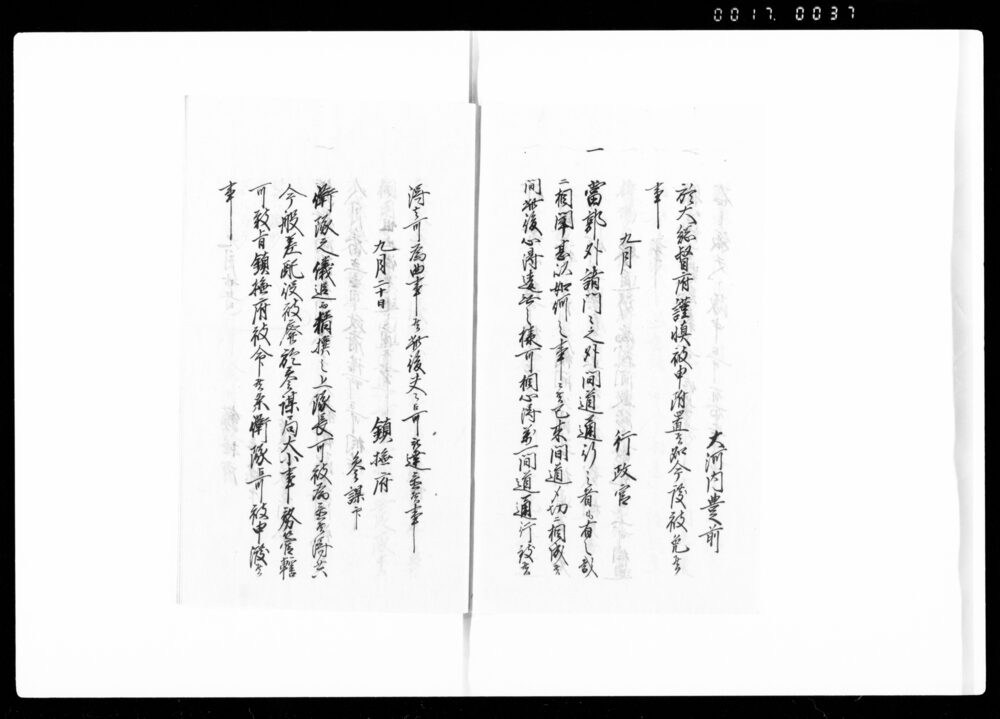 0017.0037
大河内豊前
於大総督府謹慎被申附置候処今後被免候
事
九月
行政官
一
當郭外諸門之外間道通行之者も有之哉
二相聞甚以如何之事ニ候已来間道〆切ニ相成候
間此後心得違無之様可相心得若間道通行致候
得者可為曲事候此後丈ニ可相達至候事
九月二十日
鎮撫府
参謀
衛隊之儀追而精撰之上隊長可被為至候得共
今般差配役被廃於参謀局大小事務管轄
可致旨鎮撫府被命候条衛隊可被申渡候
事